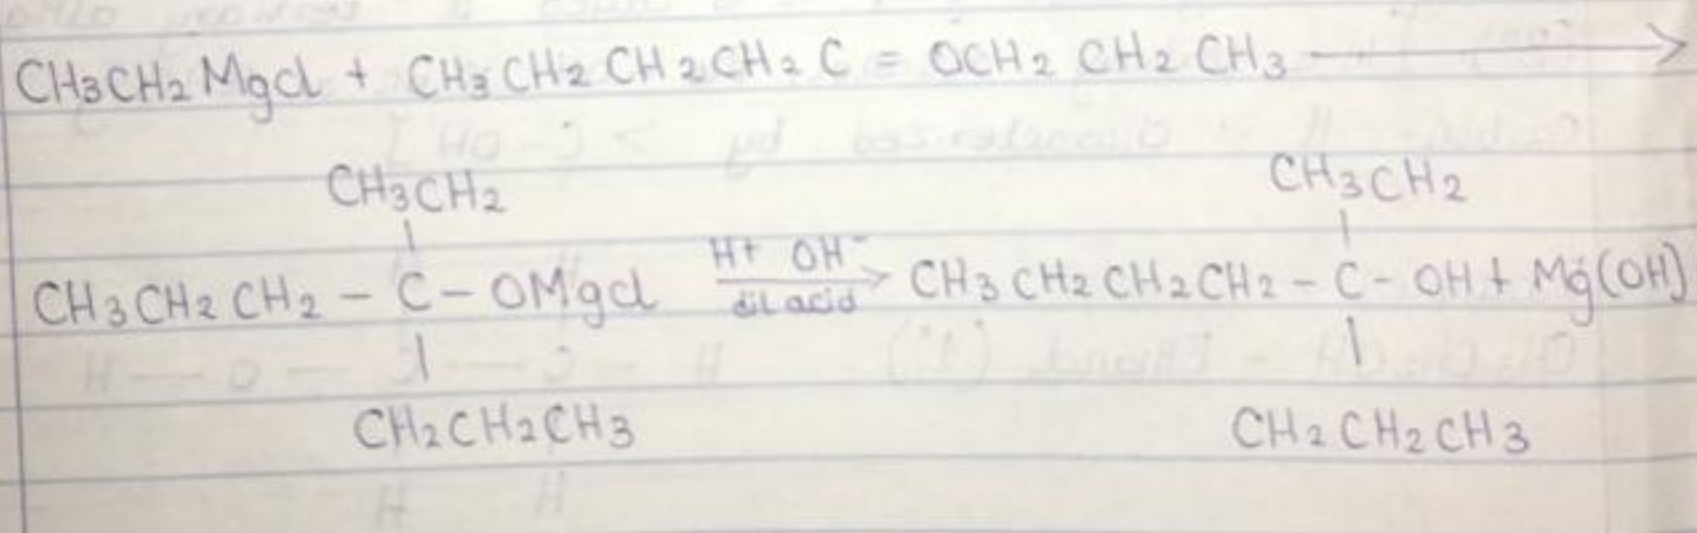 CH3CH2MgCl + CH3CH2CH2CH2C = OCH2CH2CH3 →
CH3CH2 CH3CH2
CH3CH2CH2 - C - OMgCl H+ OH- → dil acid CH3CH2CH2CH2 - C - OH + Mg(OH)
CH2CH2CH3 CH2CH2CH3